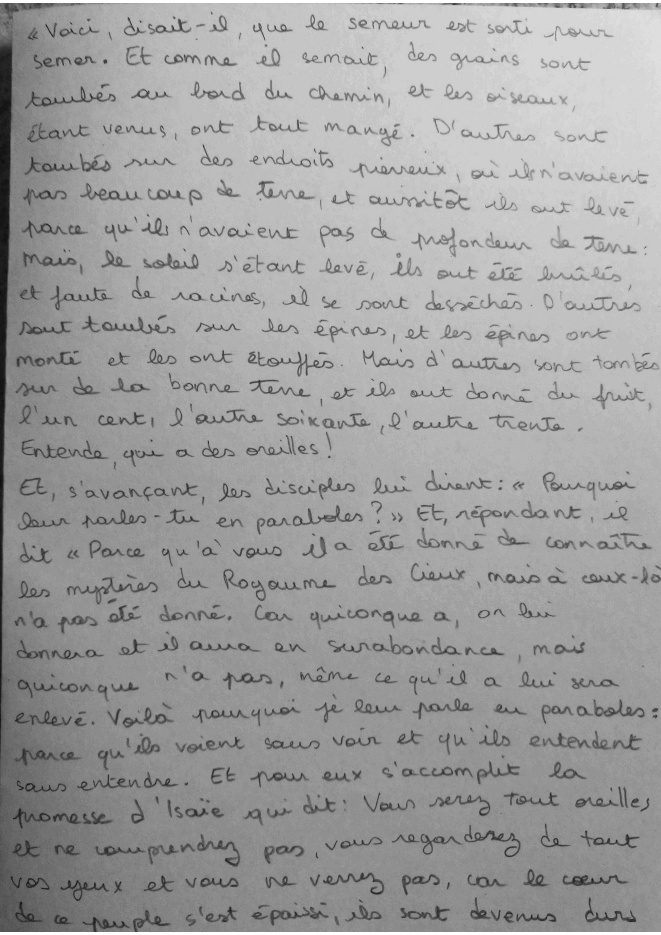 « Voici, disait-il, que le semeur est sorti pour
semer. Et comme il semait, des grains sont
tombés au bord du chemin, et les oiseaux,
étant venus, ont tout mangé. D'autres sont
tombés sur des endroits pierreux, où ils n'avaient
pas beaucoup de terre, et aussitôt ils ont levé,
parce qu'ils n'avaient pas de profondeur de terre :
mais, le soleil s'étant levé, ils ont été brûlés,
et faute de racines, il se sont desséchés. D'autres
sont tombés sur les épines, et les épines ont
monté et les ont étouffés. Mais d'autres sont tombés
sur de la bonne terre, et ils ont donné du fruit,
l'un cent, l'autre soixante, l'autre trente.
Entende, qui a des oreilles !
Et, s'avançant, les disciples lui dirent : « Pourquoi
leur parles-tu en paraboles ? » Et, répondant, il
dit « Parce qu'à vous il a été donné de connaître
les mystères du Royaume des Cieux, mais à ceux-là
n'a pas été donné. Car quiconque a, on lui
donnera et il aura en surabondance, mais
quiconque n'a pas, même ce qu'il a lui sera
enlevé. Voilà pourquoi je leur parle en paraboles :
parce qu'ils voient sans voir et qu'ils entendent
sans entendre. Et pour eux s'accomplit la
promesse d'Isaïe qui dit : Vous serez tout oreilles
et ne comprendrez pas, vous regarderez de tout
vos yeux et vous ne verrez pas, car le cœur
de ce peuple s'est épaissi, ils sont devenus durs